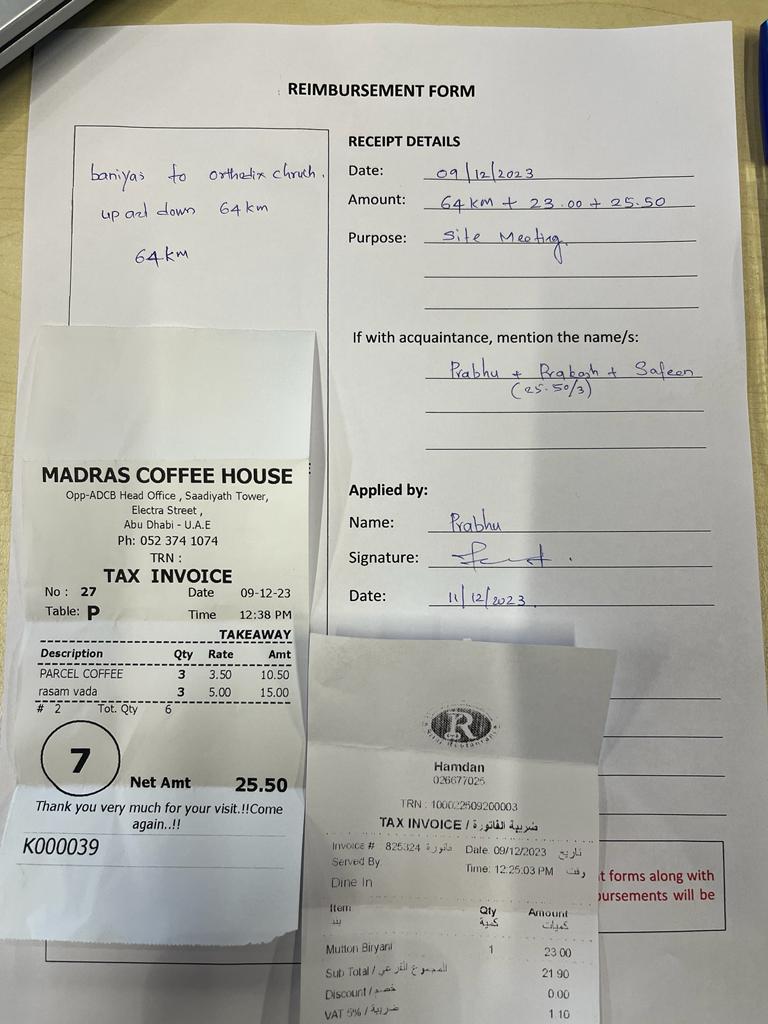 REIMBURSEMENT FORM
baniyas to orthotix chruch.
up and down 64 km
64 km
RECEIPT DETAILS
Date: 09/12/2023
Amount: 64 km + 23.00 + 25.50
Purpose: Site Meeting.
If with acquaintance, mention the name/s:
Prabhu + Prakash + Safeen
(25.50/3)
Applied by:
Name: Prabhu
Signature:
Date: 11/12/2023.
MADRAS COFFEE HOUSE
Opp-ADCB Head Office , Saadiyath Tower,
Electra Street ,
Abu Dhabi - U.A.E
Ph: 052 374 1074
TRN :
TAX INVOICE
No : 27 Date 09-12-23
Table: P Time 12:38 PM
TAKEAWAY
Description Qty Rate Amt
PARCEL COFFEE 3 3.50 10.50
rasam vada 3 5.00 15.00
# 2 Tot. Qty 6
7 Net Amt 25.50
Thank you very much for your visit.!!Come
again..!!
K000039
R
Hamdan
026677025
TRN : 100022509200003
TAX INVOICE / ضريبية الفاتورة
Invoice # 825324 فاتورة Date 09/12/2023 تاريخ
Served By Time: 12:25:03 PM وقت
Dine In
Item Qty Amount
بند كمية كميات
Mutton Biryani 1 23.00
Sub Total / المجموع الفرعي 21.90
Discount / خصم 0.00
VAT 5% / ضريبة 1.10
t forms along with
bursements will be